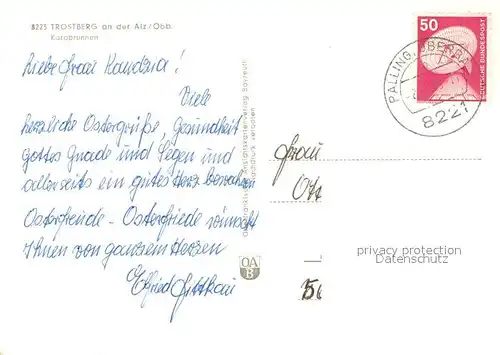 8223 TROSTBERG an der Alz/Obb.
Karobrunnen
Liebe Frau Kandzia!
Viele
herzliche Ostergrüße, Gesundheit
Gottes Gnade und Segen und
allerseits ein gutes Herz bewahren
Osterfreude - Osterfriede wünscht
Ihnen von ganzem Herzen
Elfried
Ansichtskartenverlag Bayreuth
Nachdruck verboten
OA
B
50
DEUTSCHE BUNDESPOST
PALLING, OBERBAY
8221
Frau
Ott
privacy protection
Datenschutz